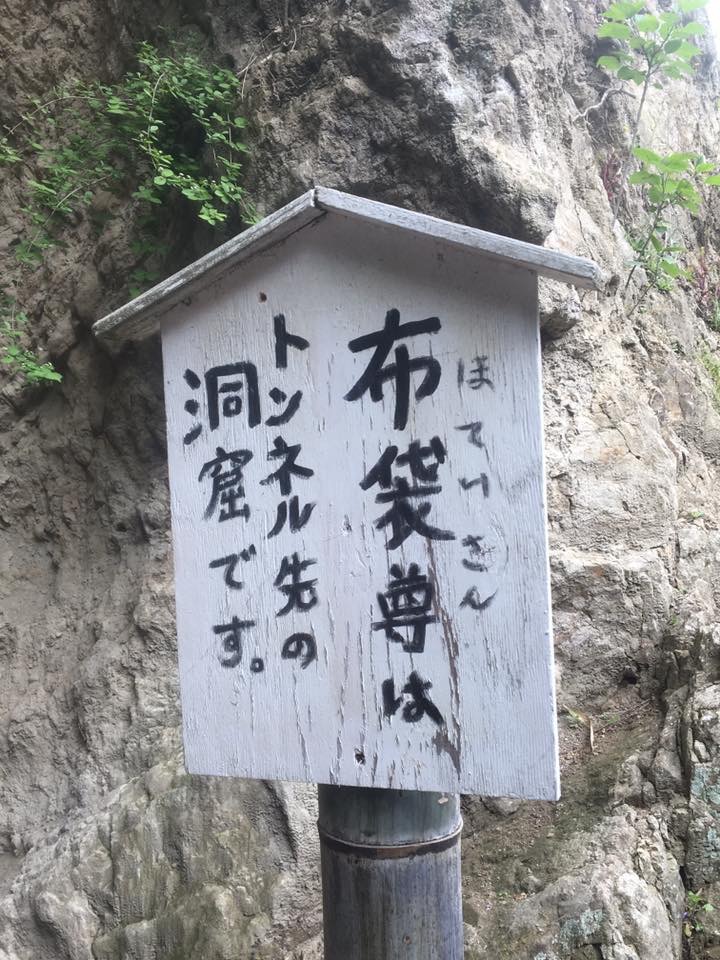 ほていさん
布袋尊は
トンネル先の
洞窟です。